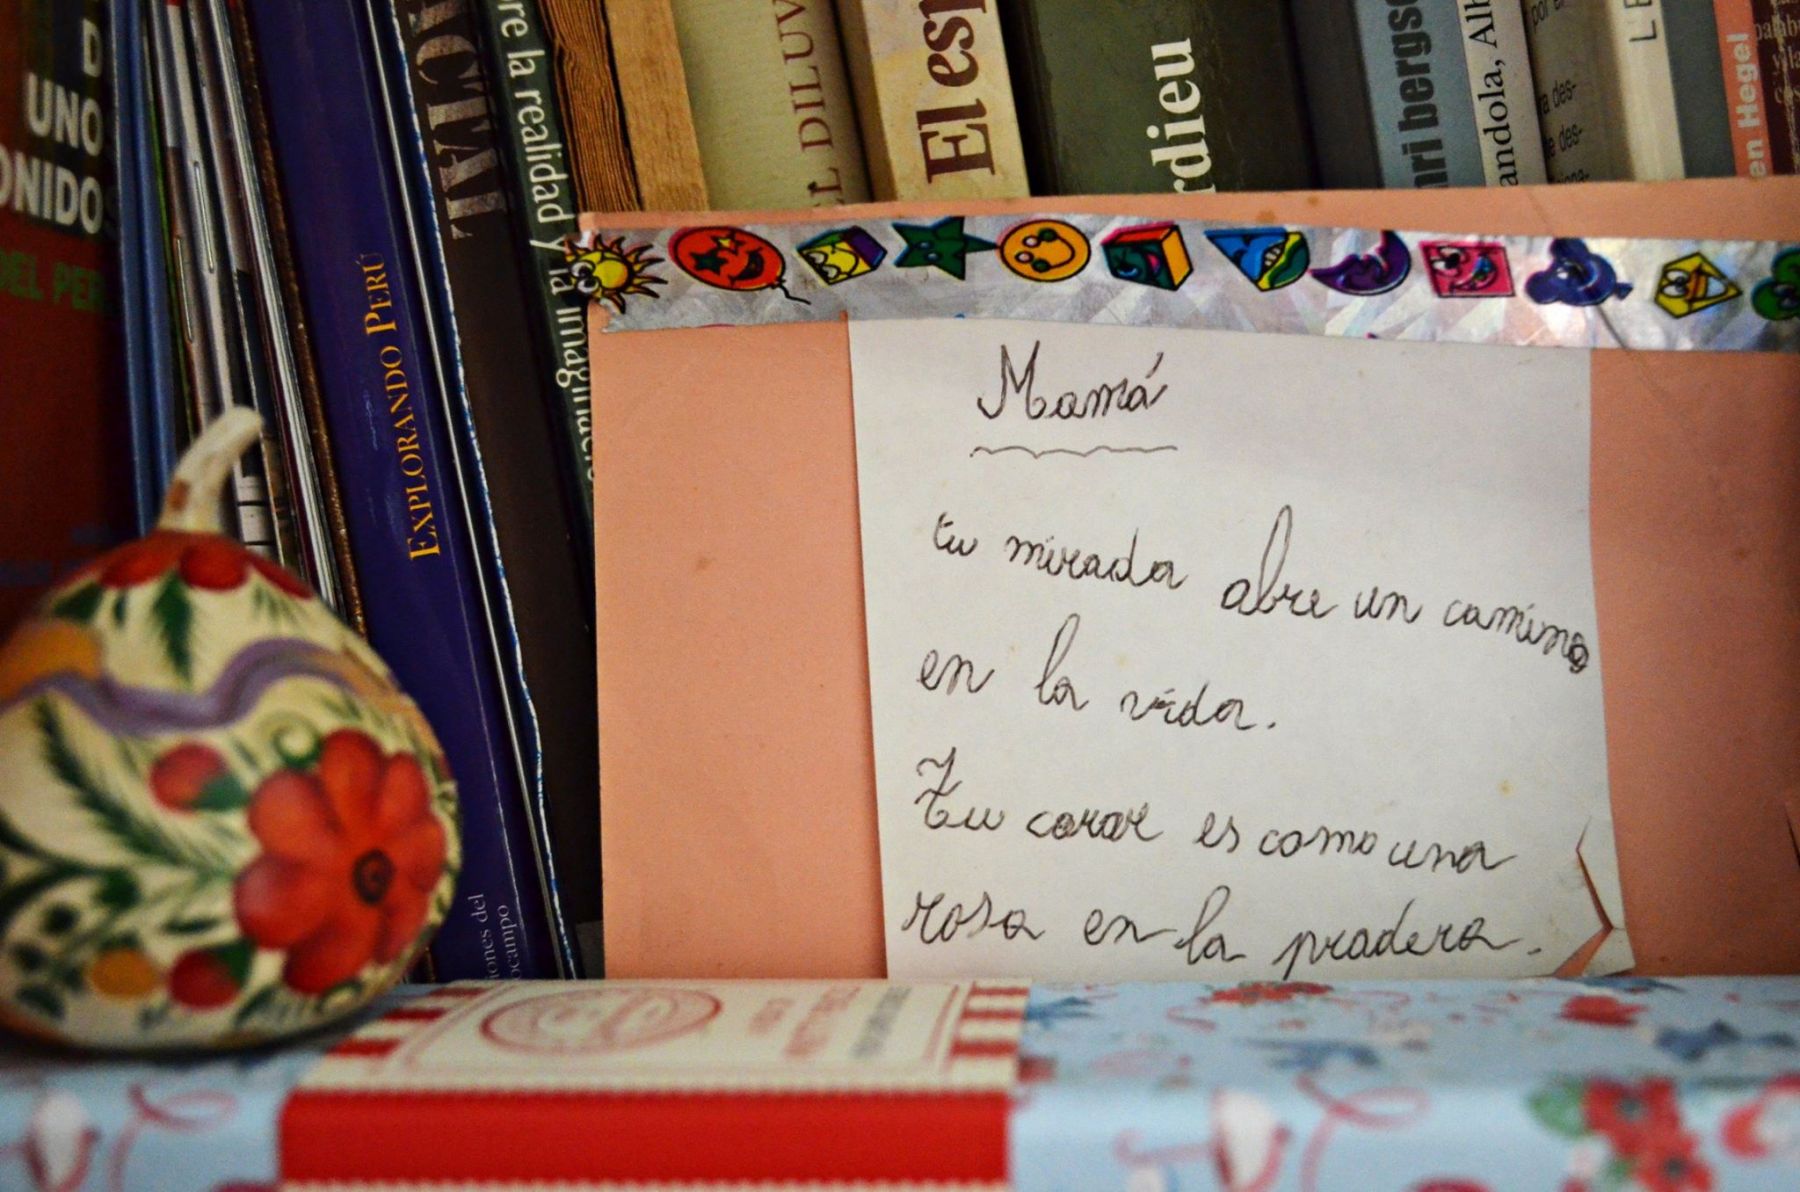 D
UNO
ONIDO
DEL PER
EXPLORANDO PERÚ
iones del
ocampo
ACIAL
bre la realidad y la imaginaci
EL DILUV
El esp
rdieu
nri bergso
andola, Alb
ra des-
e des-
ciona-
LE
en Hegel
Mamá
tu mirada abre un camino
en la vida.
Tu corar es como una
rosa en la pradera.